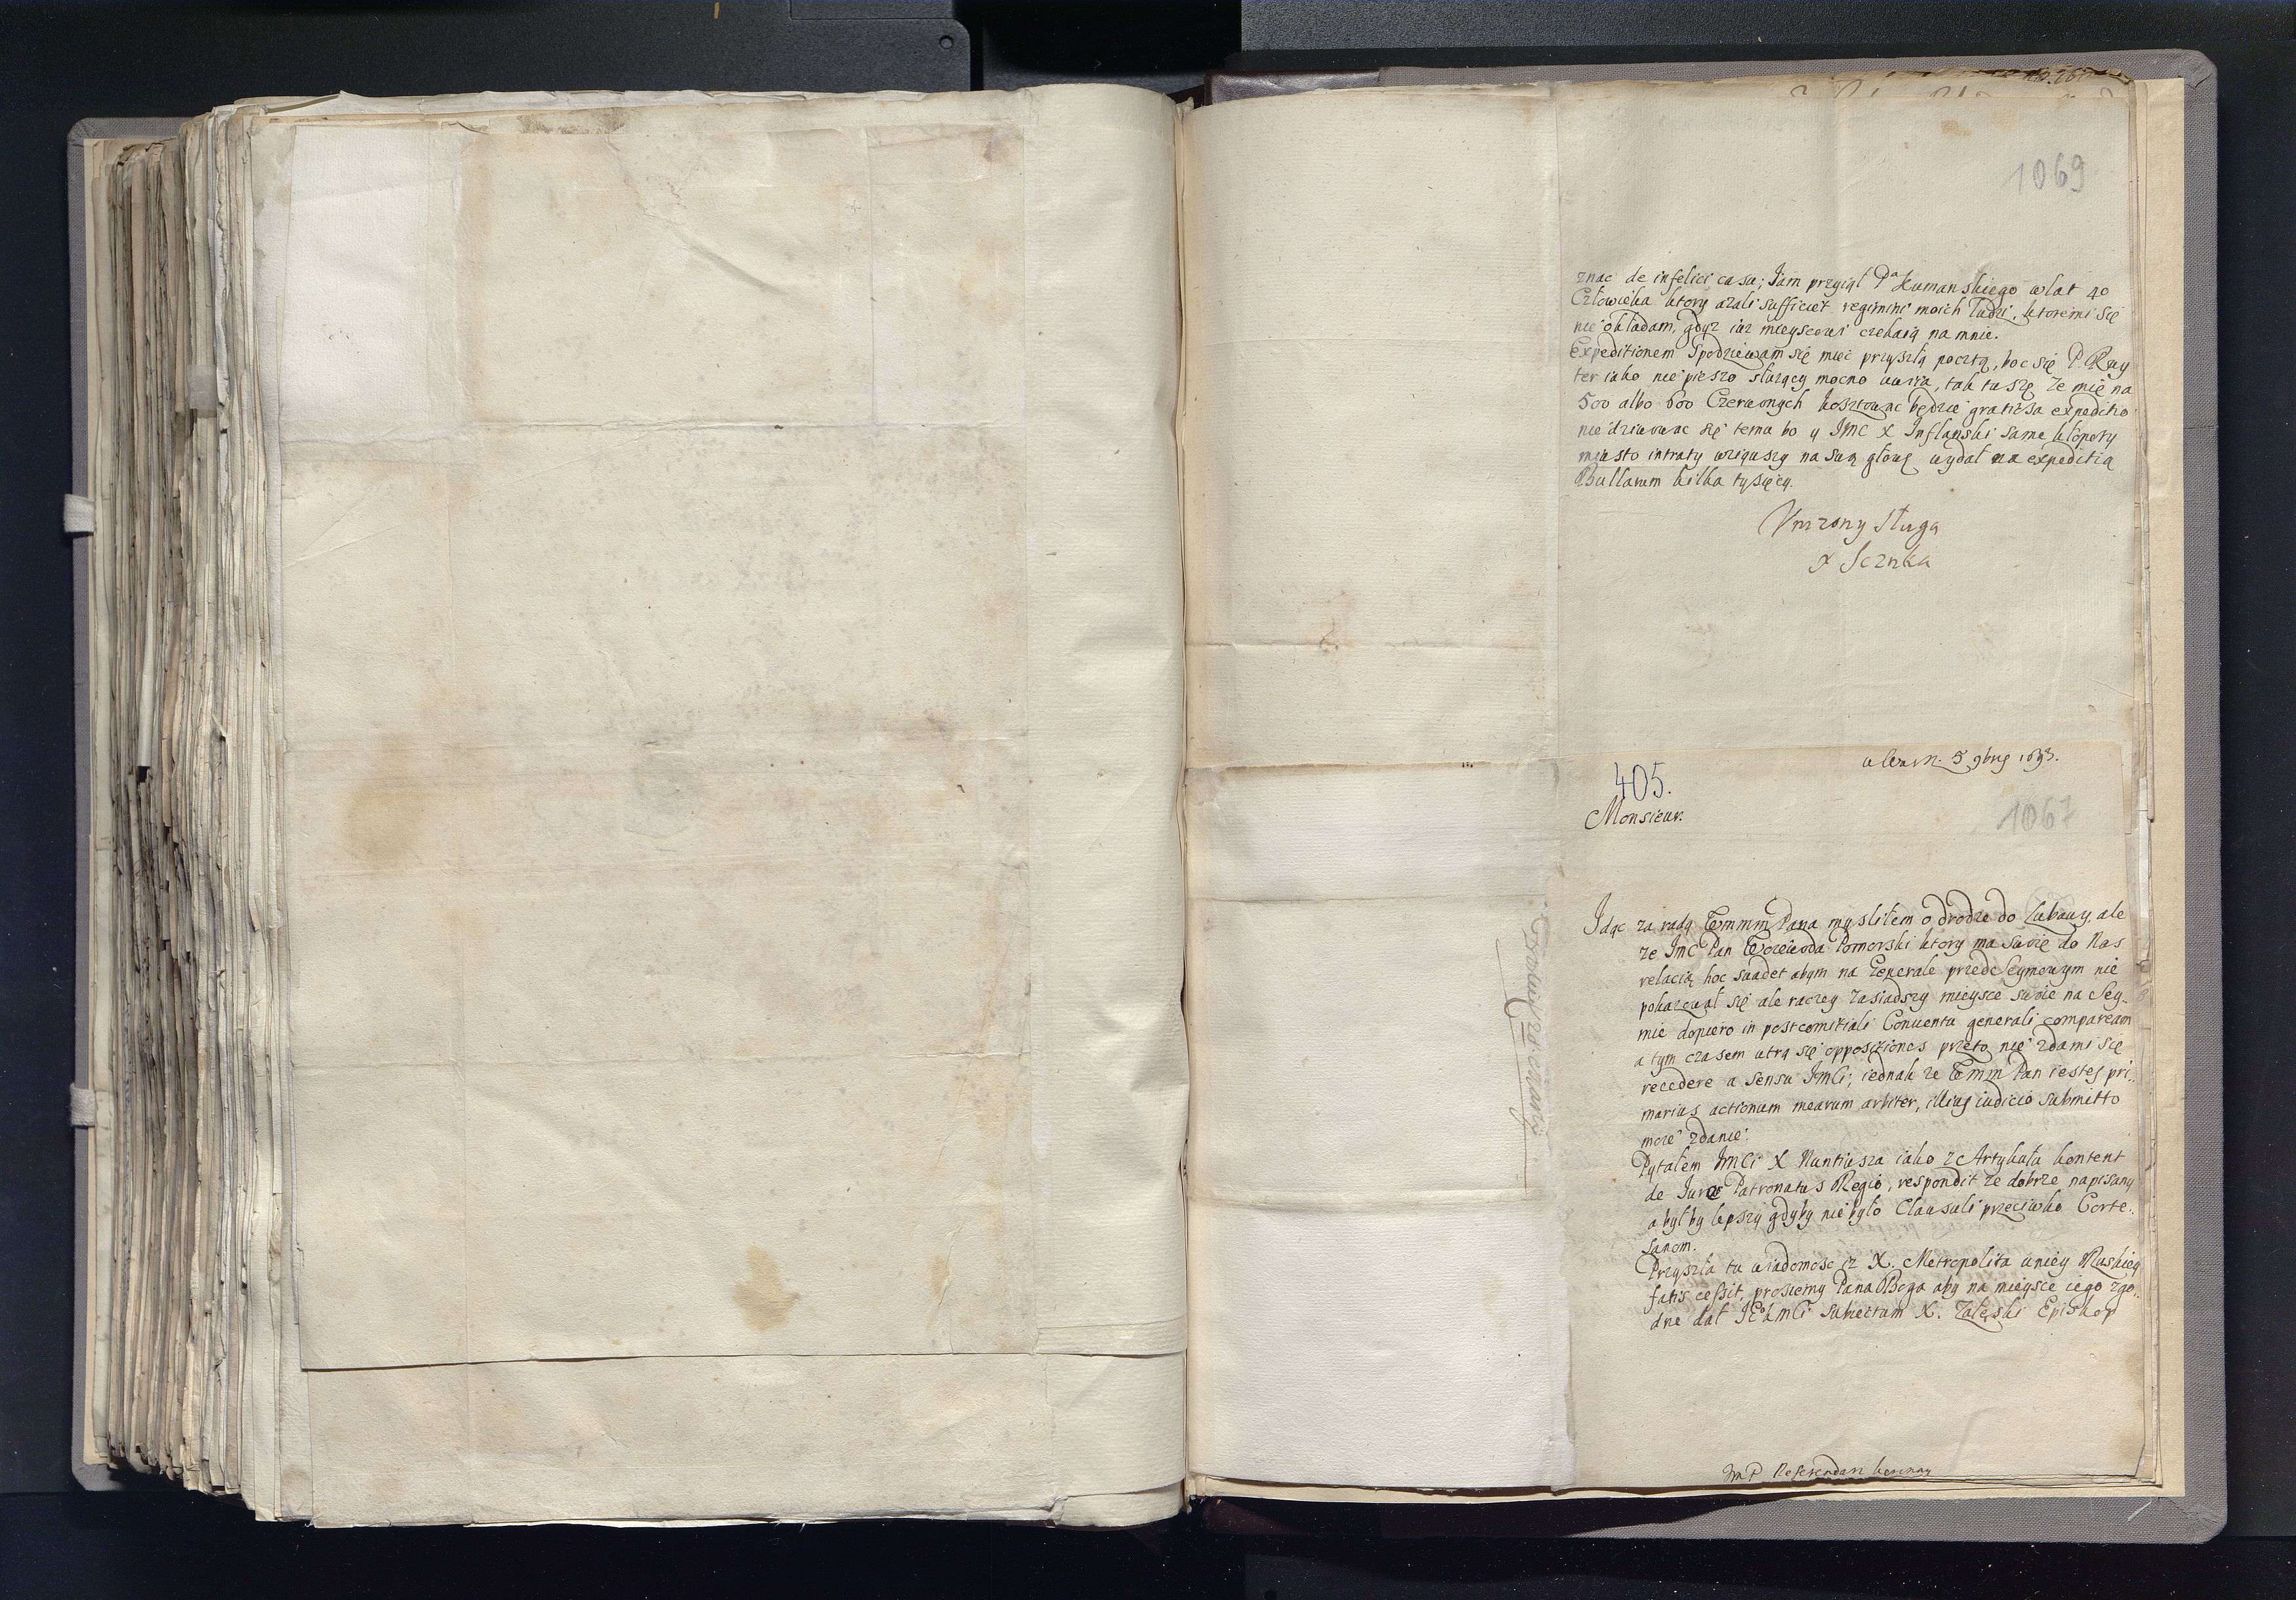 1069
znac de infelici casu; Jam przyiął Pa Kumanskiego w lat 40
Człowieka ktory azali sufficiet regimini moich ludzi, ktoremi się
nie okładam, gdyz iuz mieyscowi czekaią na mnie.
Expeditionem Spodziewam się miec przyszłą pocztą, boc się P. Ruy
ter iako nie pieszo słuzący mocno uwiia, tak tuszę ze mię na
500 albo 600 Czerwonych kosztowac będzie gratiosa expeditio
nie dziwowac się temu bo y JMC X Inflanski same kłopoty
miasto intraty wziąwszy na swą głowę wydał na expeditią
Bullarum kilka tysięcy.
Vnizony sługa
X Sczuka
w Warsz. 5 9bris 1693.
405.
1067
Monsieur.
Idąc za radą Wmmm Pana mysliłem o drodze do Lubawy, ale
ze Jmc Pan Woiewoda Pomorski ktory ma swoię do Nas
relacią hoc suadet abym na Generale przed Seymowym nie
pokazował się ale raczey zasiadszy mieysce swoie na Sey-
mie dopiero in postcomitiali Conuentu generali compaream
a tym czasem utrą się oppositiones przeto nie zda mi się
recedere a sensu JmCi, iednak ze Wmm Pan iestes pri-
marius actionum mearum arbiter, illius iudicio submitto
moie zdanie.
Pytałem JmCi X Nuntiusza iako z Artykułu kontent
de Jure Patronatus Regio, respondit ze dobrze napisany
a byłby lepszy gdyby nie było Clausuli przeciwko Corte-
sanom.
Przyszła tu wiadomosc iz X. Metropolita uniey Ruskiey
fatis cessit, prosiemy Pana Boga aby na mieysce iego zgo-
dne dał JKMCi subiectum X. Załęski Episkop
JmP Referendarz koronny